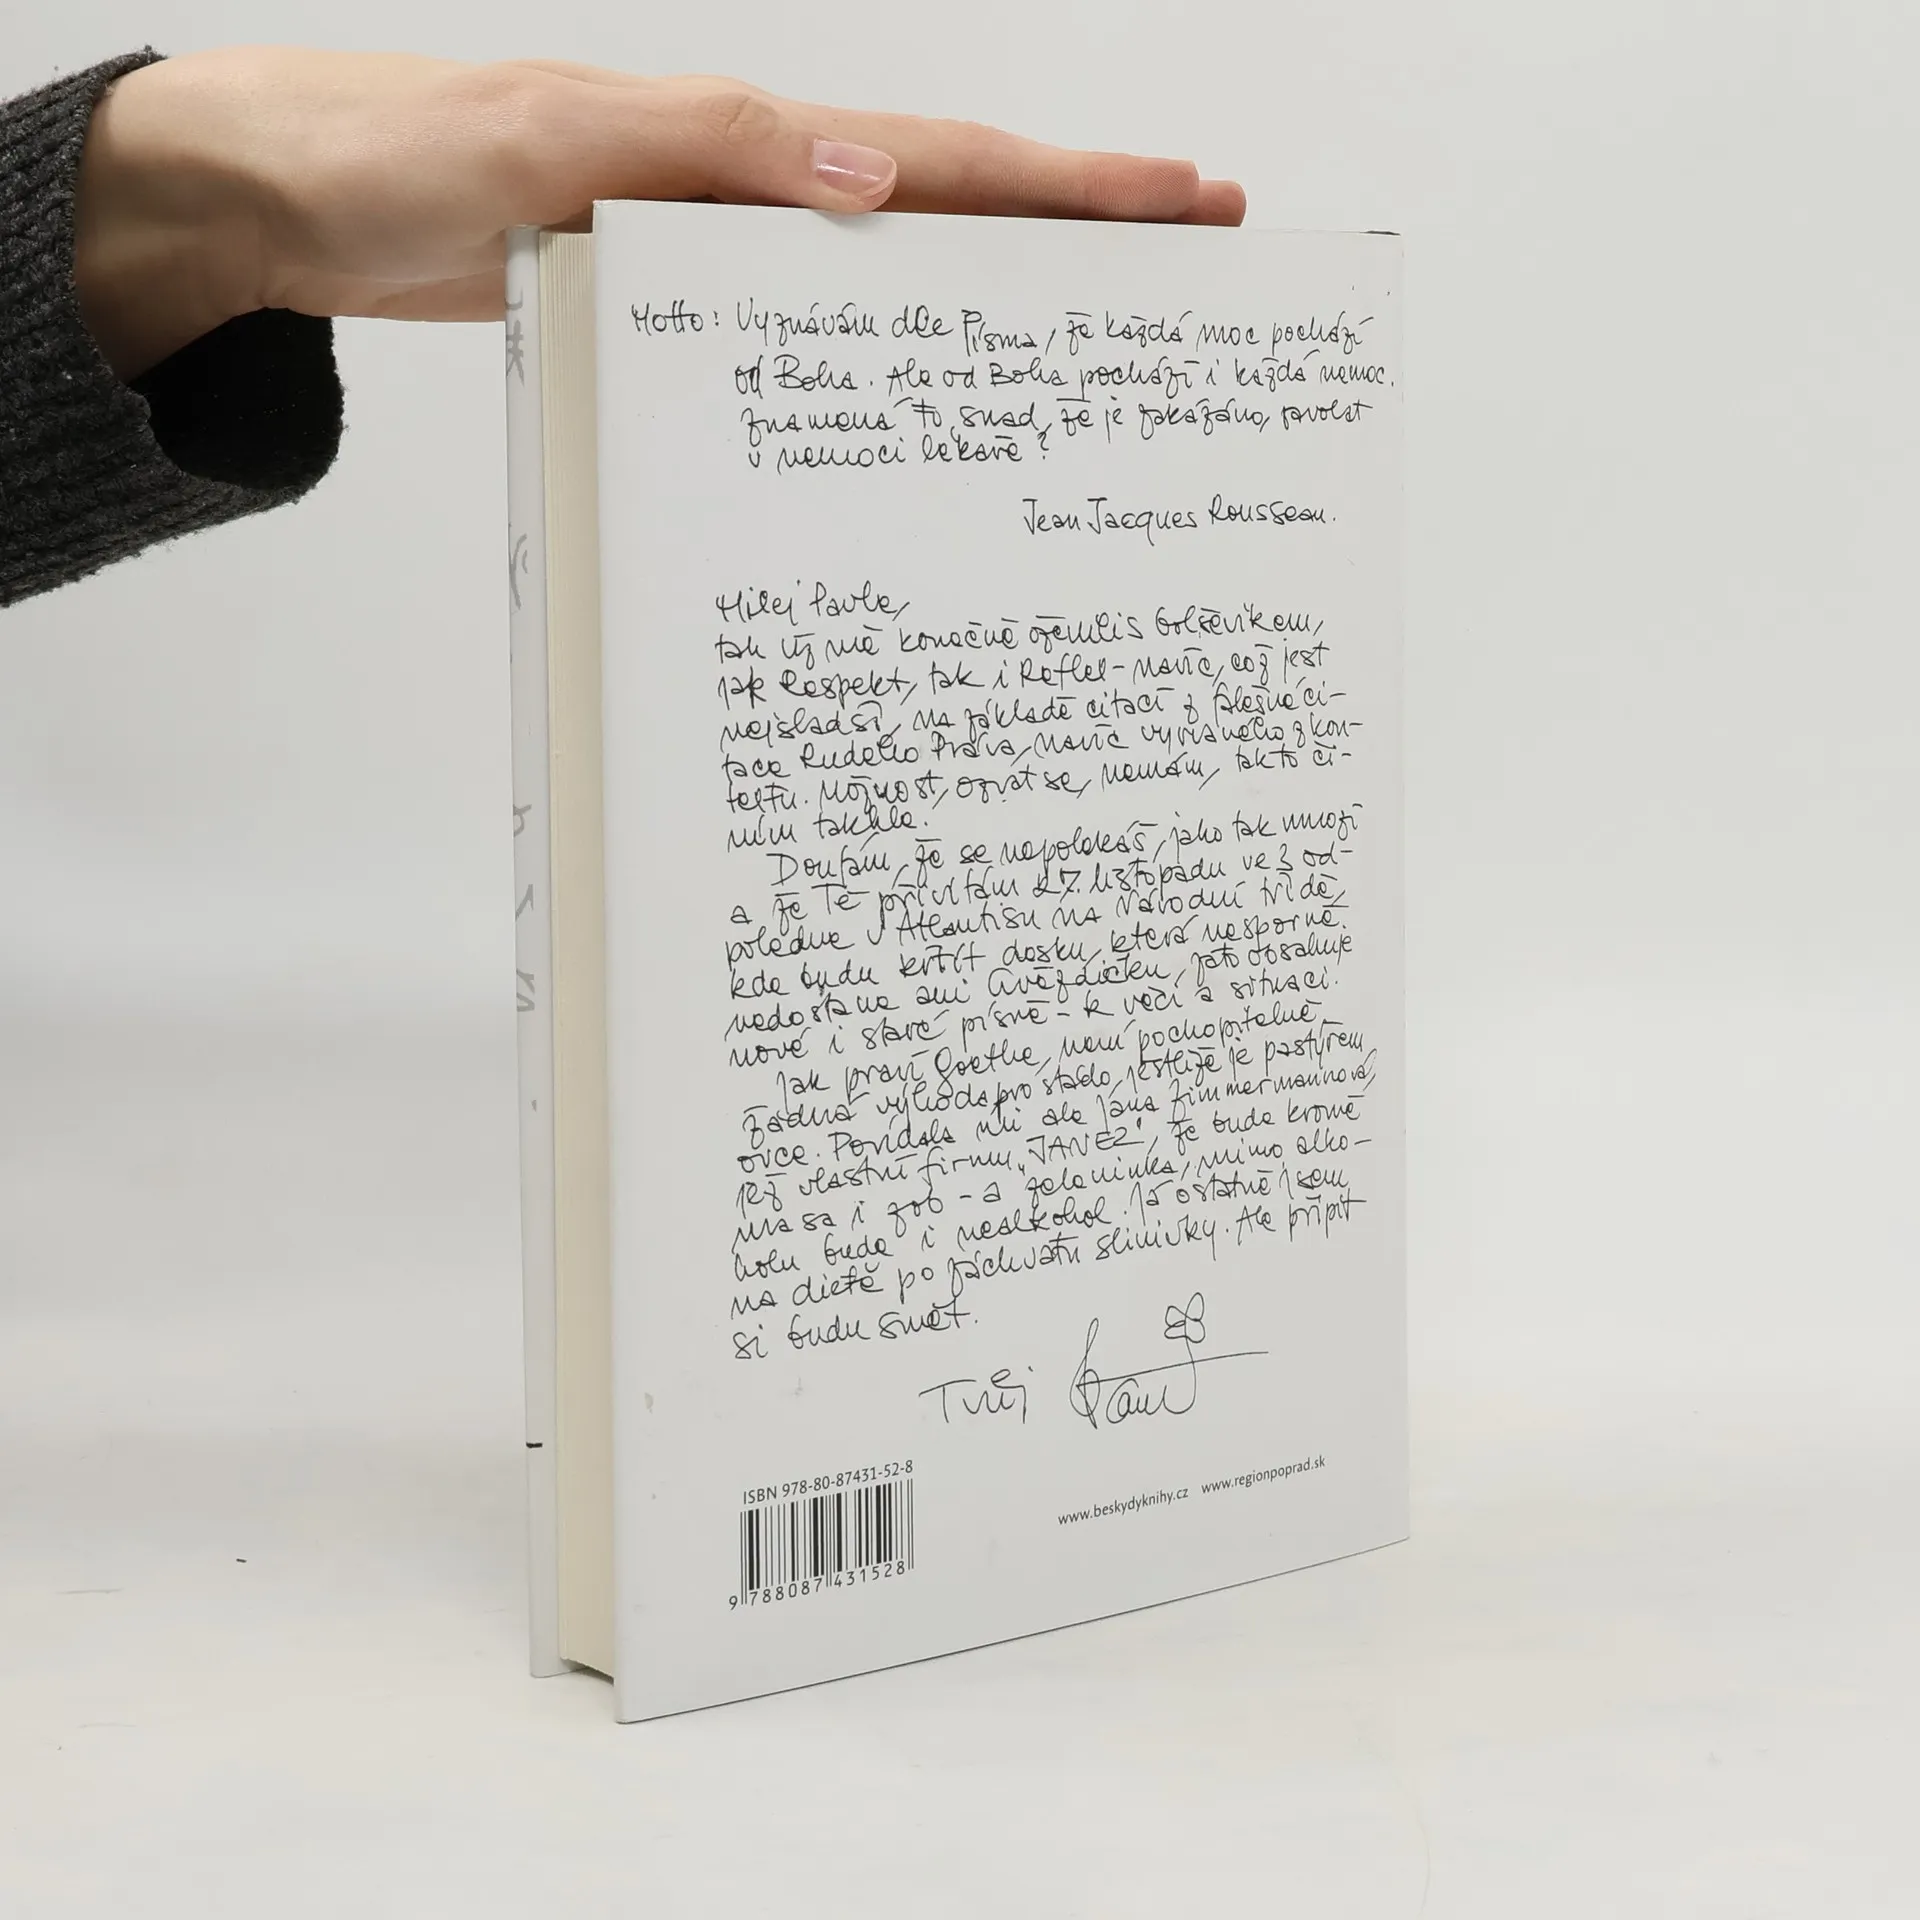 Motto: Vyznávám dle Písma, že každá moc pochází
od Boha. Ale od Boha pochází i každá nemoc.
Znamená to snad, že je zakázáno, zavolat
v nemoci lékaře?
Jean Jacques Rousseau.
Milej Pavle,
tak už mě konečně ozěmlis bolševikem,
jak Respekt, tak i Reflex - navíc, což jest
nejsladší, na základě citací z
tace Rudého Práva, navíc vyrvaného z kon-
textu. Možnost, ozvat se, nemám, tak to či-
ním takhle.
Doufám, že se nepolekáš, jako tak mnozí
a že Tě přivítám 27. listopadu ve 3 od-
poledne v Atlantisu na Národní třídě,
kde budu křtít desku, která nesporně
nedostane ani hvězdičku, jato obsahuje
nové i staré písně - k věci a situaci.
Jak praví Goethe, není pochopitelně
žádná výhoda pro stádo, jestliže je pastýřem
ovce. Povídala mi ale Jana Zimmermannová,
jež vlastní firmu "JANEZ", že bude kromě
masa i zob - a zeleninka, mimo alko-
holu bude i nealkohol. Já ostatně jsem
na dietě po záchvatu slinivky. Ale připít
si budu smět.
Tvůj
ISBN 978-80-87431-52-8
9 788087 431528
www.beskydyknihy.cz www.regionpoprad.sk